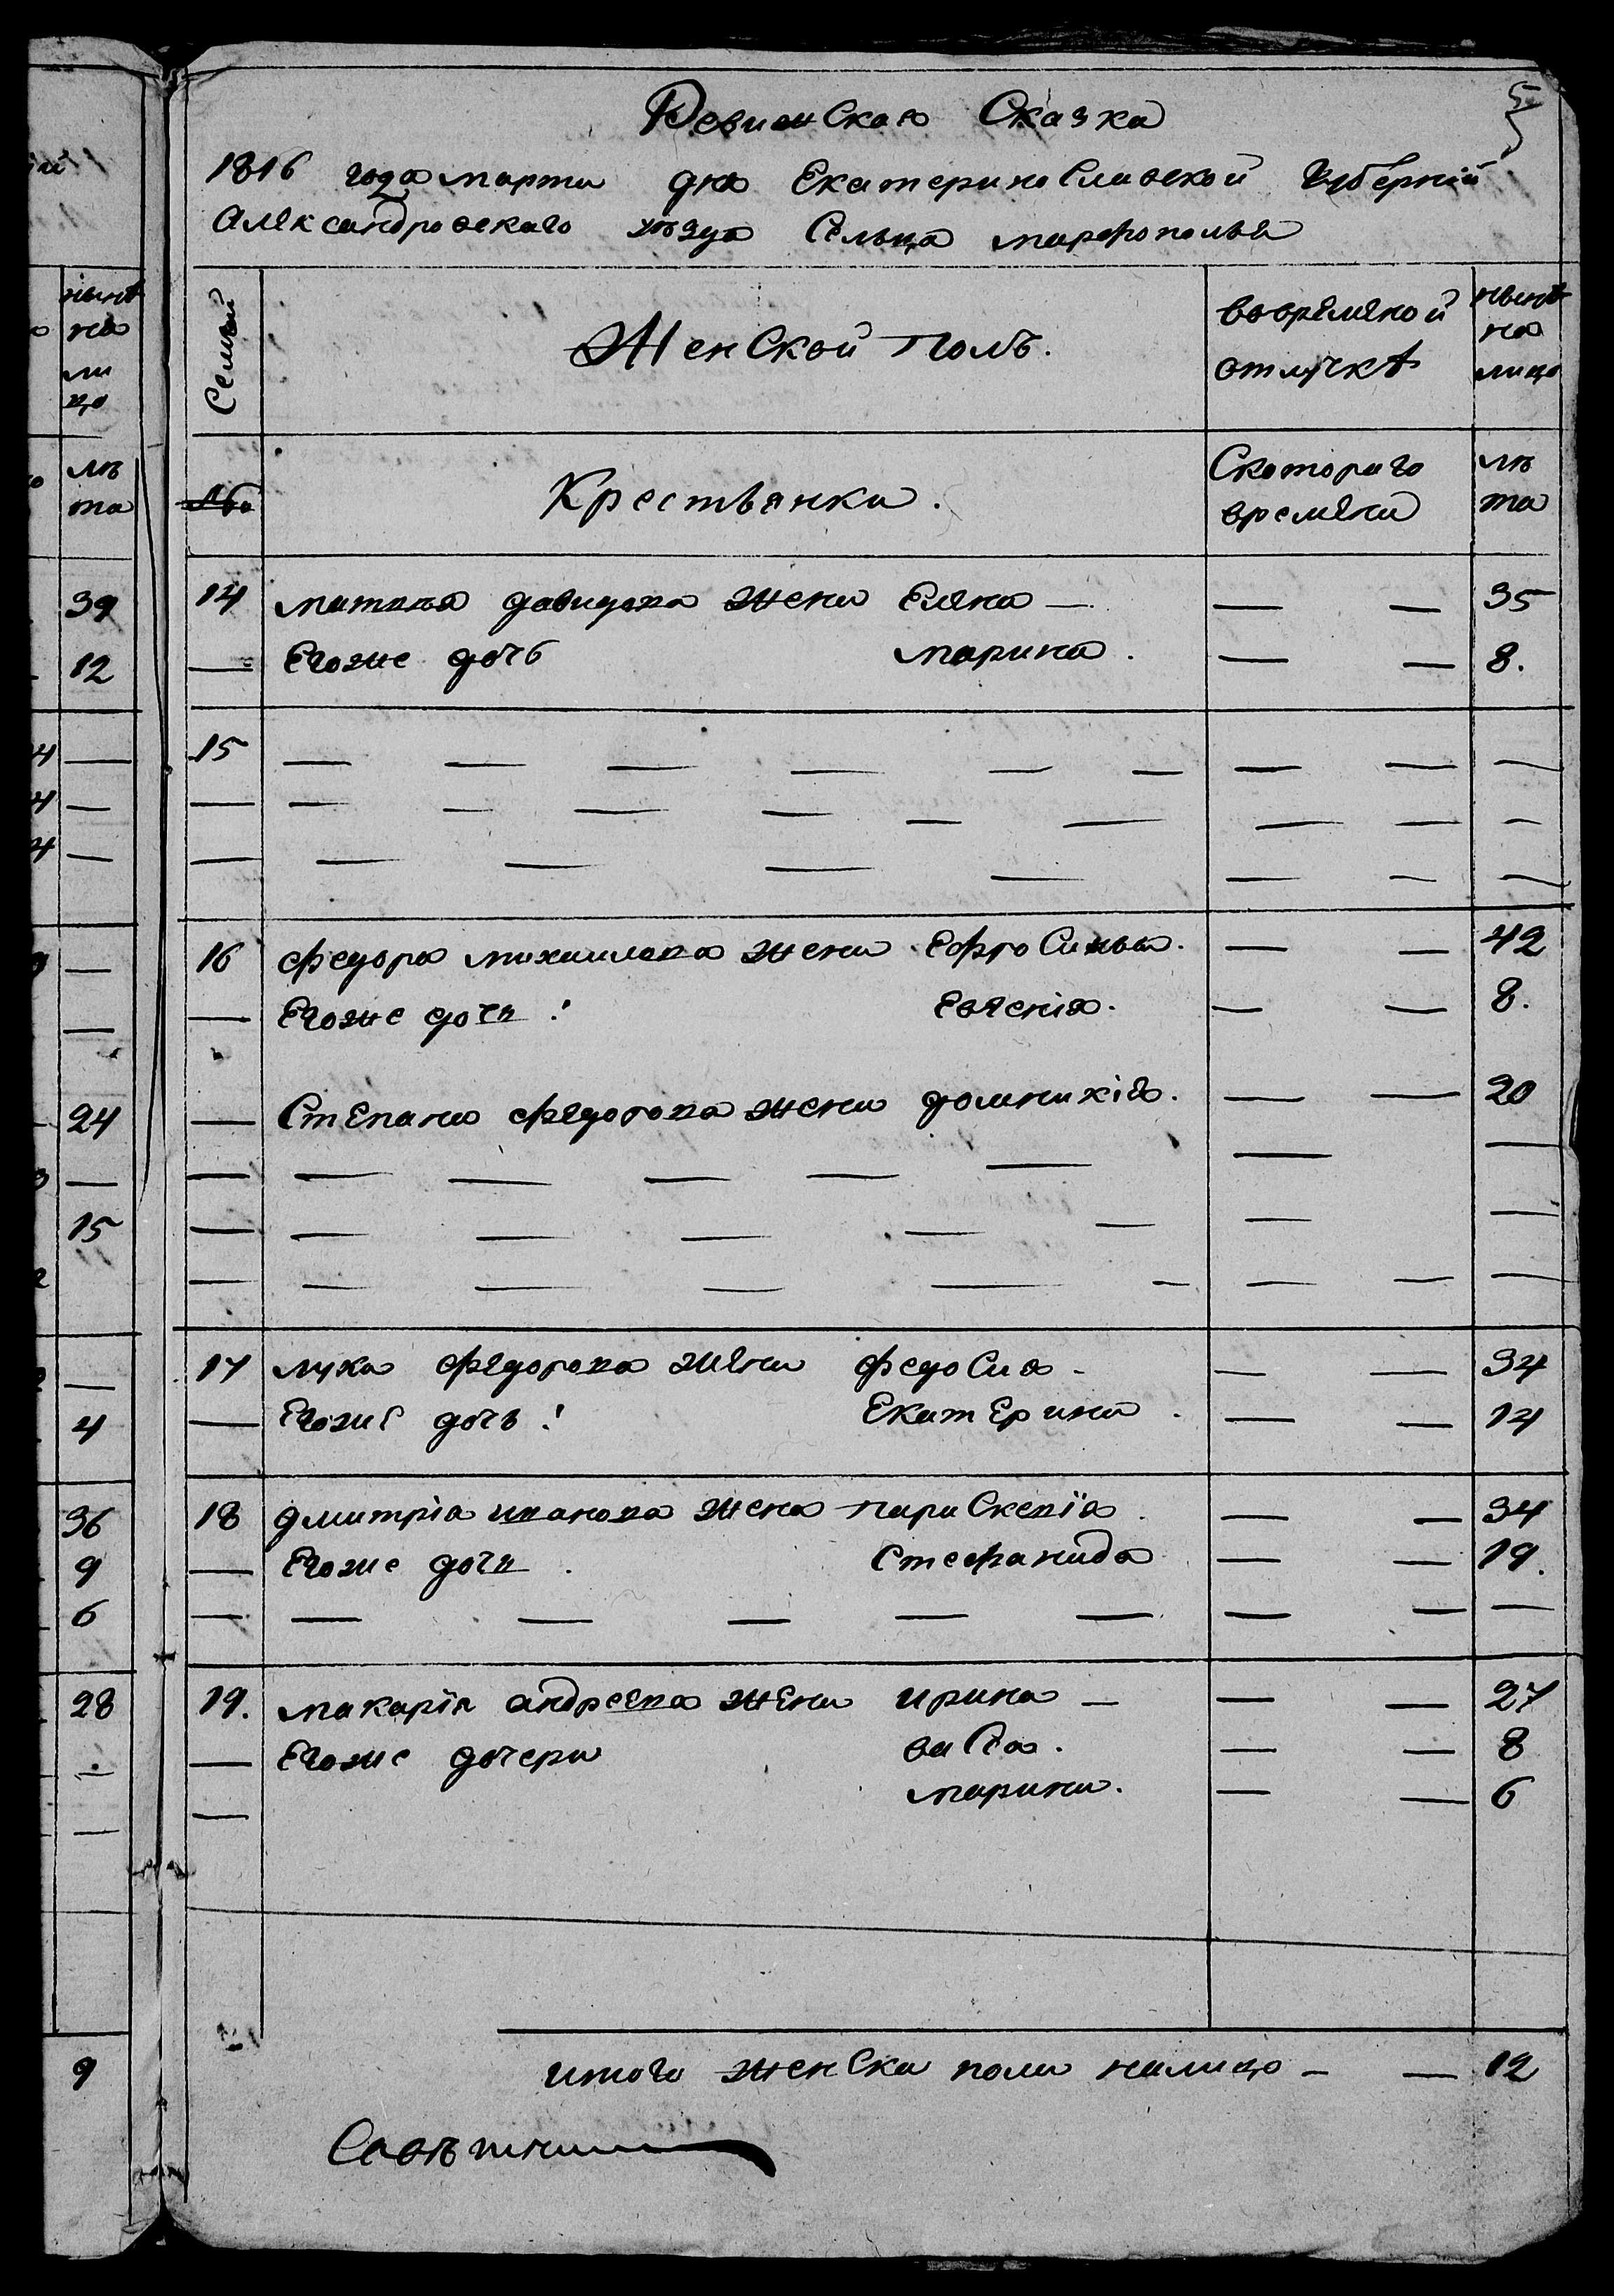 Ревижская Сказка
5
1816 года марта дня Екатеринославской Губерній
Александровскаго уѣзда Сельца марфополья
ныне
на
ли
цо
лѣ
та
39
12
24
15
4
36
9
6
28
9
Семьи
Женской полъ.
вовремяной
отлучкѣ
нынѣ
на
лицо
№
Крестьянки.
Скотораго
времяни
лѣ
та
14 матвея давидова жена Елена — — — 35
— Егоже дочь марина. — — 8.
15 — — — — — — — — —
— — — — — — — — — —
— — — — — — — —
16 Федора михаилова жена Ефросинья. — — 42
— Егоже дочь Евгенія. — — 8.
— Степана Федорова жена домникія. — — 20
— — — — — — — —
— — — — — — — —
— — — — — — — — —
17 лука Федорова жена Федосия - — — 34
— Егоже дочь Екатерина. — — 14
18 дмитрія иванова жена параскевія. — — 34
— Егоже дочь. Стефанида — — 19.
— — — — — — — — —
19. макарія андреева жена ирина — — — 27
— Егоже дочери васса. — — 8
— марина. — — 6
итого женска пола налицо — — 12